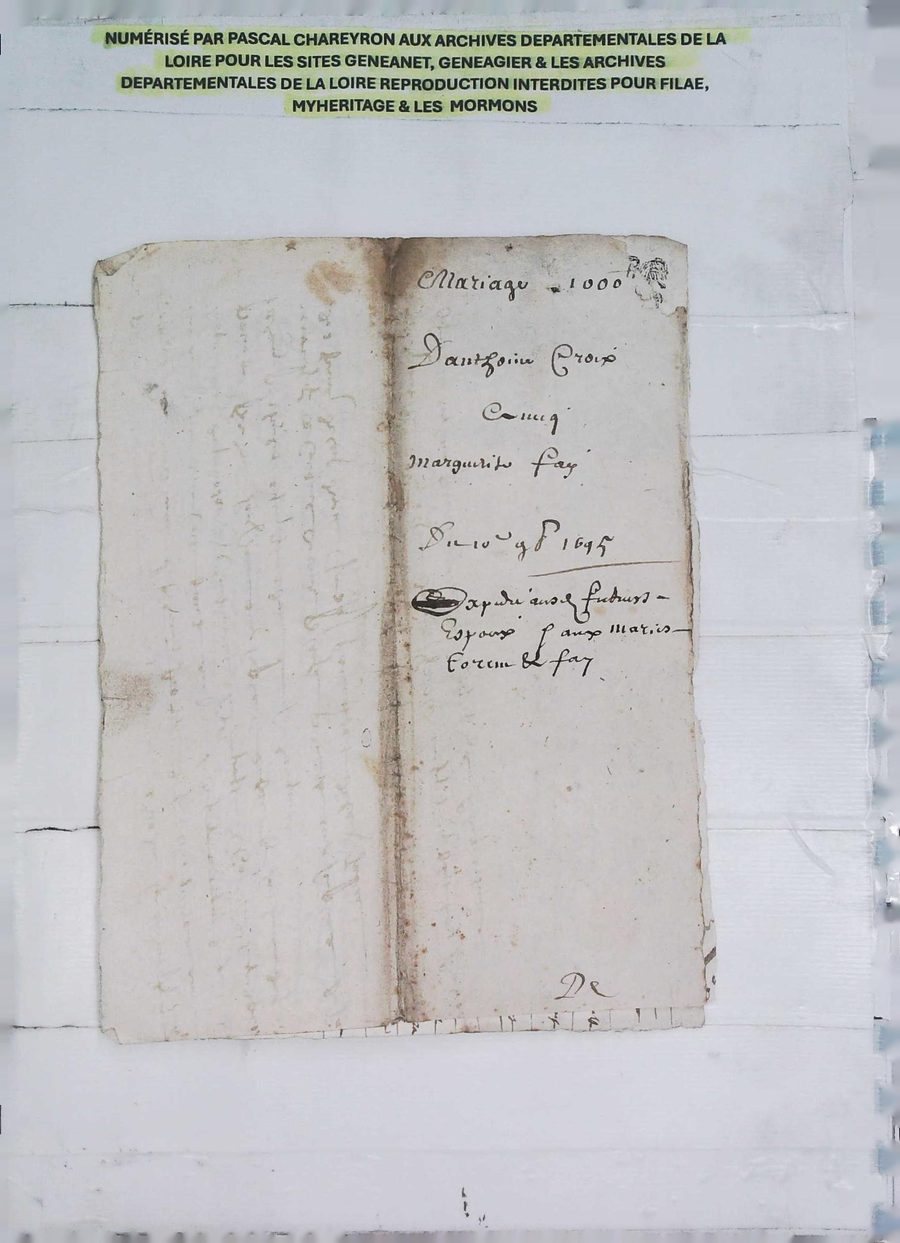 NUMÉRISÉ PAR PASCAL CHAREYRON AUX ARCHIVES DEPARTEMENTALES DE LA
LOIRE POUR LES SITES GENEANET, GENEAGIER & LES ARCHIVES
DEPARTEMENTALES DE LA LOIRE REPRODUCTION INTERDITES POUR FILAE,
MYHERITAGE & LES MORMONS
Mariage 1000
Danthoine Croix
Marguerite fay
Du 10e 9b 1695
Expedié futurs
Espoux aux maries
& fay
De